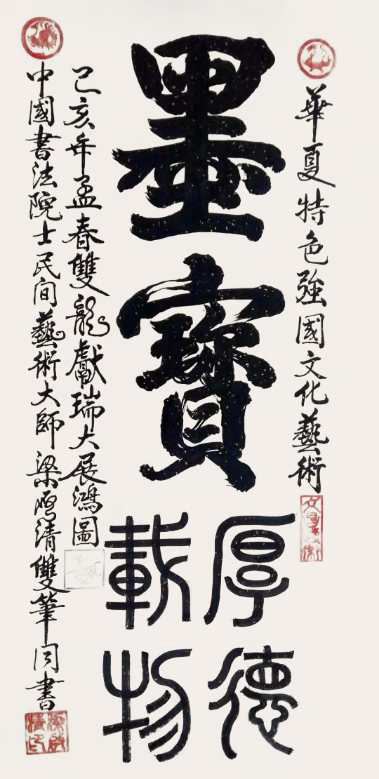 華夏特色強國文化藝術
墨寶
厚德
載物
己亥年孟春雙龍獻瑞大展鴻圖
中國書法院士民间藝術大師梁清雙筆同書